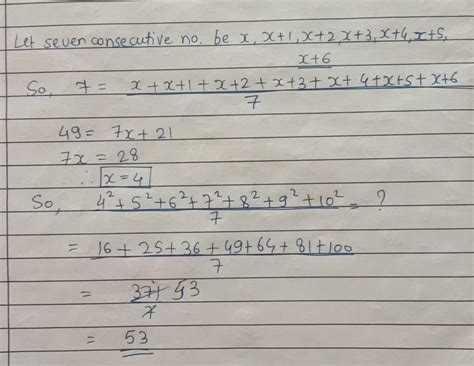 Let seven consecutive no. be x, x+1, x+2, x+3, x+4, x+5,
x+6
So, 7 = x + x+1 + x+2 + x+3 + x+ 4+x+5 + x+6
7
49 = 7x + 21
7x = 28
∴ x = 4
So, 4² + 5² + 6² + 7² + 8² + 9² + 10² = ?
7
= 16 + 25 + 36 + 49 + 64 + 81 + 100
7
= 371 53
7
= 53